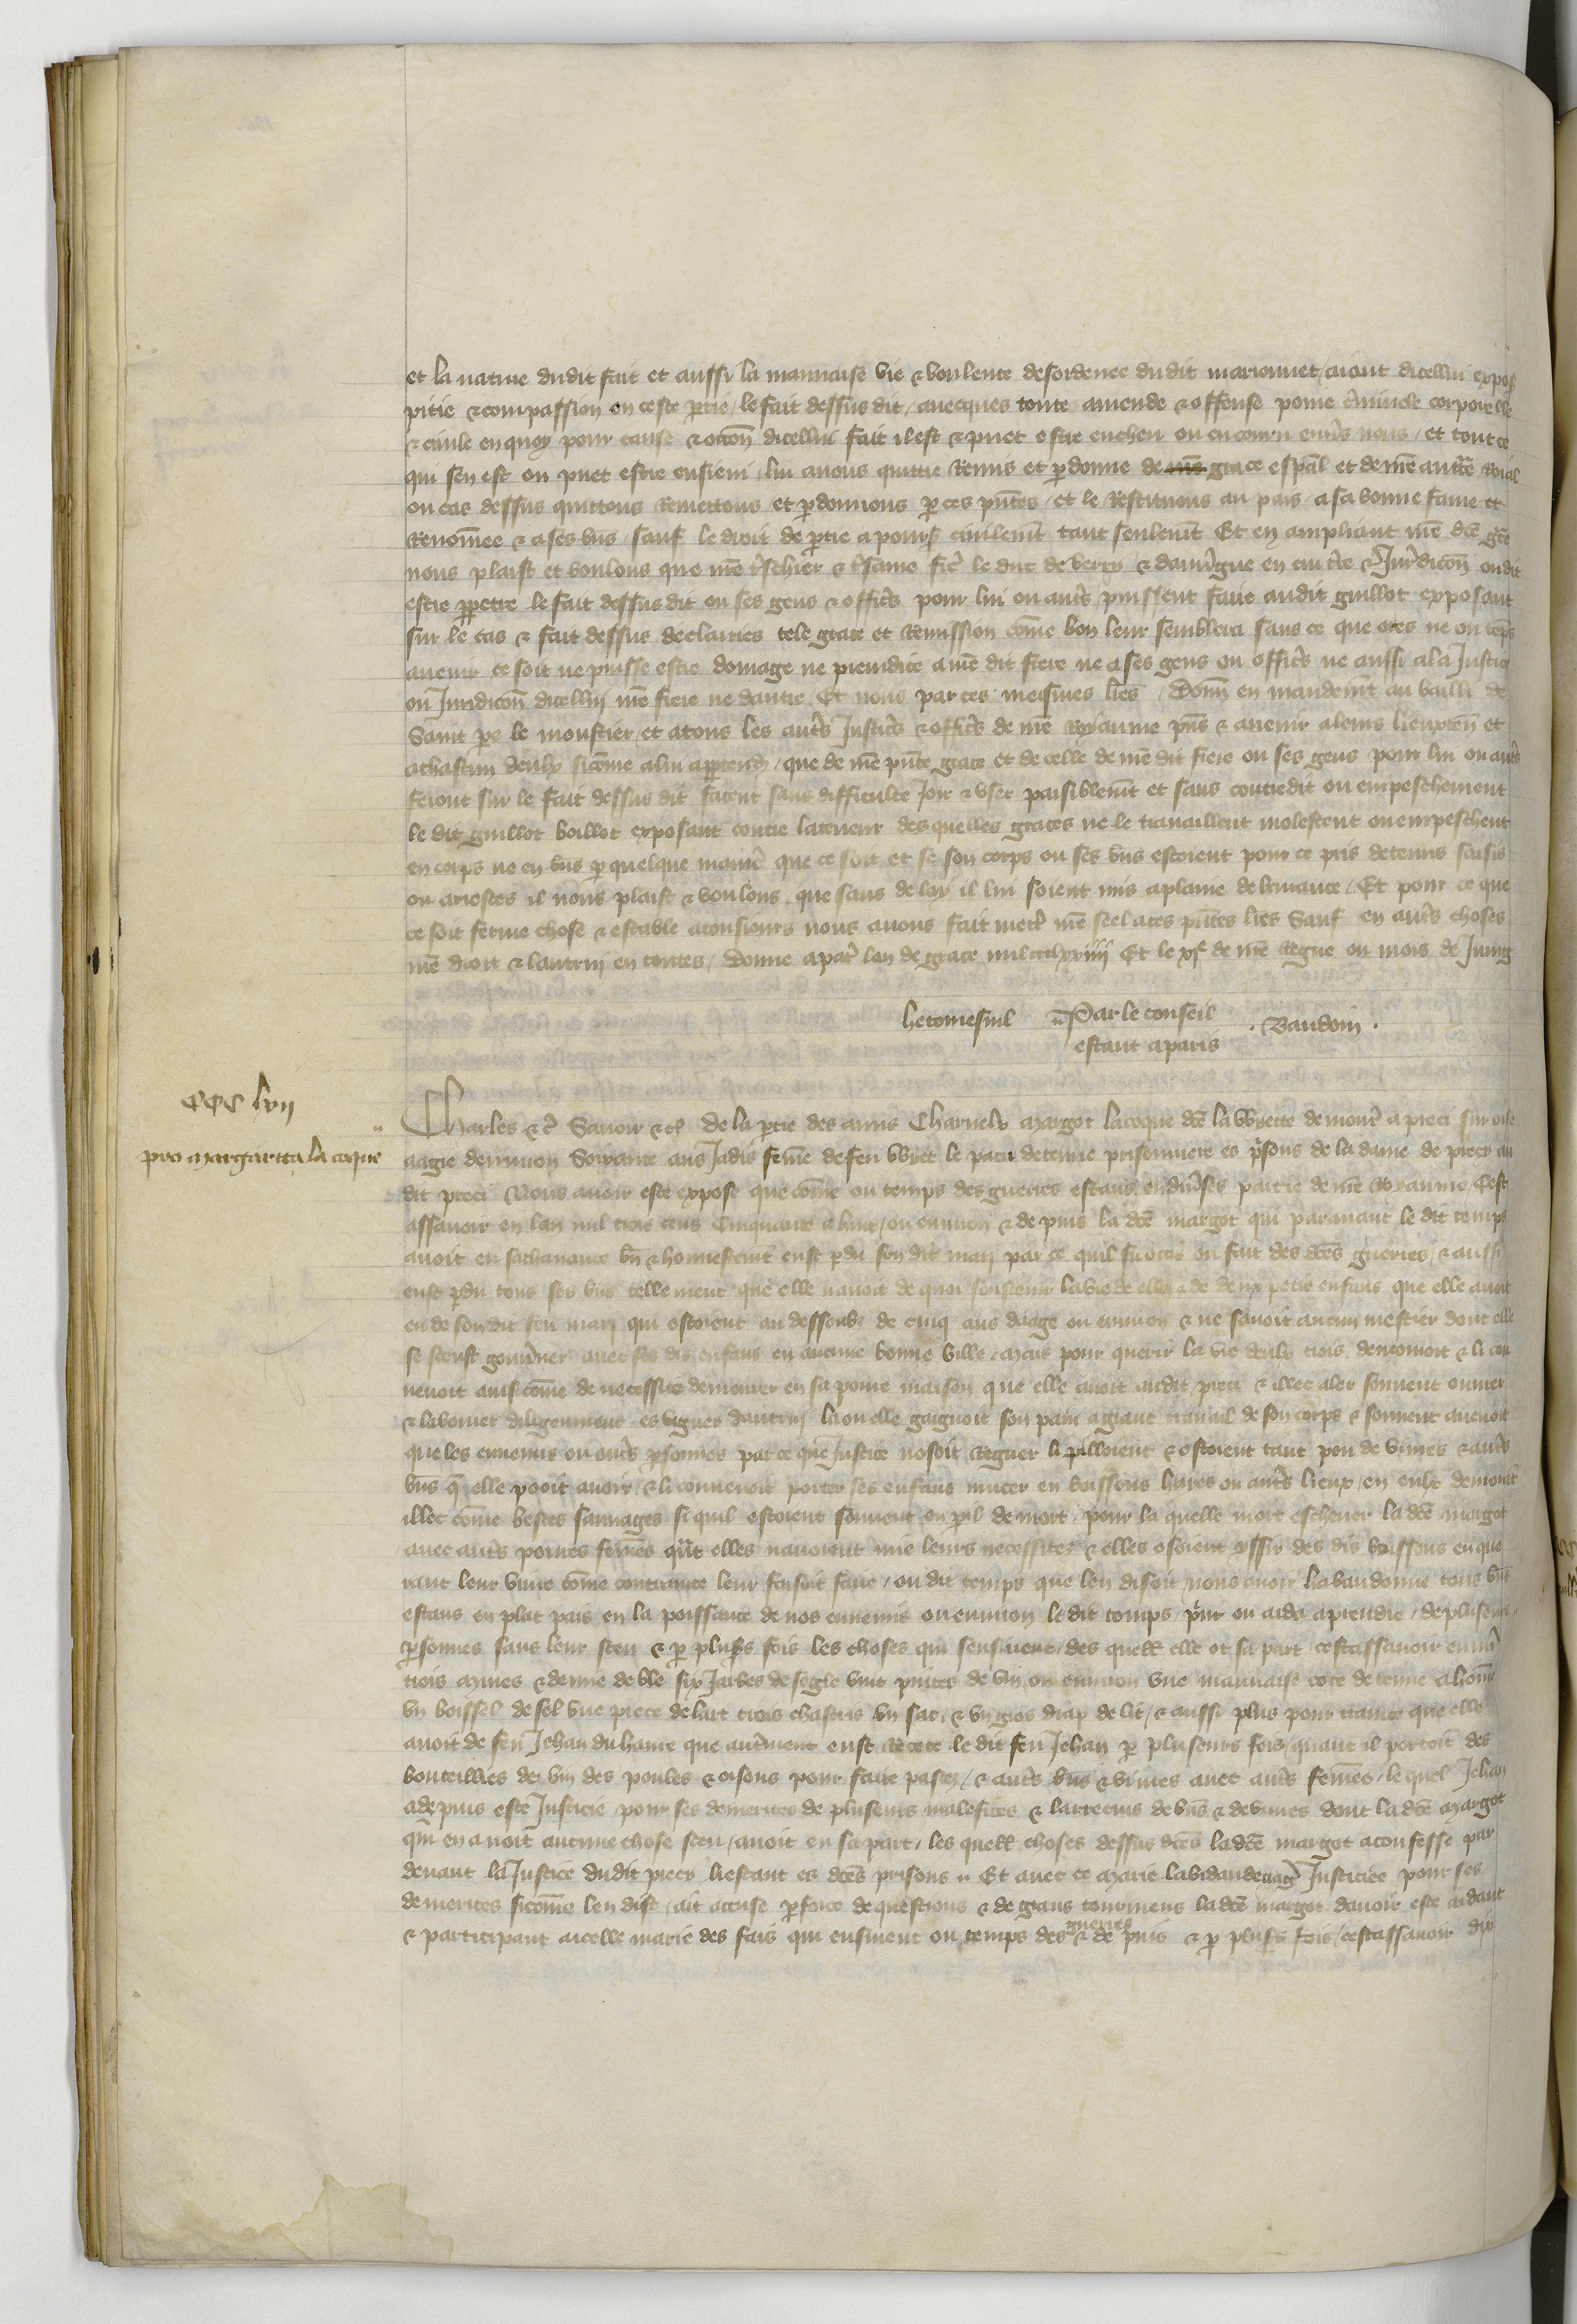 et la nature dudit fait et aussi la mauuaise vie & voulente desordenee dudit marionnet, aiant dicellui expos
pitie & compassion en ceste ptie, le fait dessus dit, auecques toute amende & offense peine criminele corporelle
& ciuile en quoy pour cause & occon dicellui fait il est & puet estre encheu ou encouru enus nous, et tout ce
qui sen est ou puet estre ensieui, lui auons quittie Remis et pdonne de grace espal et de nre auctte Roial
ou cas dessus quittons Remettons et pdonnons p ces pntes, et le Restituons au pais, a sa bonne fame et
Renommee & a ses bns, sauf le droit de ptie a pours ciuilemt tant seulemt Et en ampliant nre dce gce
nous plaist et voulons que nre tschier & tsame fre le duc de berry & dauuergne en cui tre & Jurdicon on dit
estre ppetre le fait dessus dit ou ses gens & offics pour lui ou auts puissent faire audit guillot exposant
sur le cas & fait dessus declairies tele grace et Remission come bon leur semblera sans ce que ores ne ou teps
auenir ce soit ne puisse estre domage ne preiudice a nre dit frere ne a ses gens ou offics ne aussi a la Justice
ou Juridicon dicellui nre frere ne dautre, Et nous par ces meismes lres, Donn en mandemt au bailli de
Saint pe le moustier, et a tous les auts Justics & offics de nre Royaume pns & auenir a leurs lieuxten et
a chascun deulx sicome a lui apptendra, que de nre pnte grace et de celle de nre dit frere ou ses gens pour lui ou auts
feront sur le fait dessus dit facent sans difficulte Joir & vser paisiblemt et sans contredit ou empeschement
le dit guillot boillot exposant contre la teneur des quelles graces ne le trauaillent molestent ou empeschent
en corps ne en bns p quelque manie que ce soit et se son corps ou ses bns estoient pour ce pris detenus saisis
ou arestes il nous plaist & voulons, que sans delay il lui soient mis a plaine deliurance, Et pour ce que
ce soit ferme chose & estable a tousiours nous auons fait mect nre seel a ces pntes lres Sauf en auts choses
nre droit & lautrui en toutes, Donne a paris lan de grace mil ccclxxiiii Et le xie de nre Regne ou mois de Juing
hetomesnil Par le conseil . Baudoin .
estant a paris
CCC lvii
pro margarita la coque
Charles &c Sauoir &c De la ptie des amis Charnelx margot la coque dce la huette demour a preci sur oise
aagie denuiron Soixante ans Jadis feme de feu huet le pain detenue prisonniere es psons de la dame de precy au
dit preci Nous auoir este expose que come ou temps des guerres estans en duises parties de nre Royaume, Cest
assauoir en lan mil trois cens Cinquante & huit, ou enuiron & depuis la dce margot qui parauant le dit temps
auoit eu sa cheuance bn & honnestemt eust pdu son dit mari par ce quil fu occis ou fait des dces guerres, & aussi
eust pdu tous ses bns tellement que elle nauoit de quoi soustenir la vie de elle & de deux petis enfans que elle auoit
eu de son dit feu mari qui estoient au dessoubz de cinq ans daage ou enuiron & ne sauoit aucun mestier dont elle
se sceust gouuner auec ses dis enfans en aucune bonne ville, mais pour querir la vie deulx trois, demouroit & li con
uenoit ausi come de necessite demourer en sa poure maison que elle auoit audit preci & illec aler souuent ouurer
& labourer diligemment es vignes dautrui la ou elle gaignoit son pain a grant trauail de son corps & souuent auenoit
que les ennemis ou auts psonnes par ce que Justice nosoit Regner li pilloient & ostoient tant pou de viures & auts
bns q elle pooit auoir, & li conuenoit porter ses enfans mucer en buissons haies ou auts lieux, en eulx demourer
illec come bestes sauuages si quil estoient souuent en pil de mort, pour la quelle mort escheuer la dce margot
auec auts poures femes qnt elles nauoient mie leurs necessitez & elles osoient yssir des dis buissons en que
rant leur viure come contrainte leur faisoit faire, ou dit temps que len disoit nous auoir habandonne tous bns
estans en plat pais en la poissance de nos ennemis ou enuiron le dit temps, print ou aida a prendre, de pluseurs
psonnes sans leur sceu & p pluss fois les choses qui sensiuent, des quelles elle ot sa part cest assauoir enuir
trois mines & demie de ble six Jarbes de segle vint pintes de vin ou enuiron vne mauuaise cote de tenue a homme
vn boissel de sel vne piece de lart trois chastris vn sac, & vn gros drap de lit, & aussi plus pour crainte que elle
auoit de feu Jehan du hame que autrement eust Recete le dit feu Jehan p pluseurs fois, quant il portoit des
bouteilles de vin des poules & oisons pour faire pastez, & auts bns & viures auec auts femes, le quel Jehan
a depuis este Justicie pour ses demerites de pluseurs malefices & larrecins de bns & de viures dont la dce margot
qui en auoit aucune chose sceu, auoit eu sa part, les quelles choses dessus dces la dce margot a confesse par
deuant la Justice dudit precy li estant es dces prisons Et auec ce marie labidaude nagr Justiciee pour ses
demerites sicome len dist, ait accuse p force de questions & de grans tourmens la dce margot dauoir este aidant
& participant a icelle marie des fais qui ensiuent ou temps des guerres & depuis & p pluss fois, cest assauoir dix